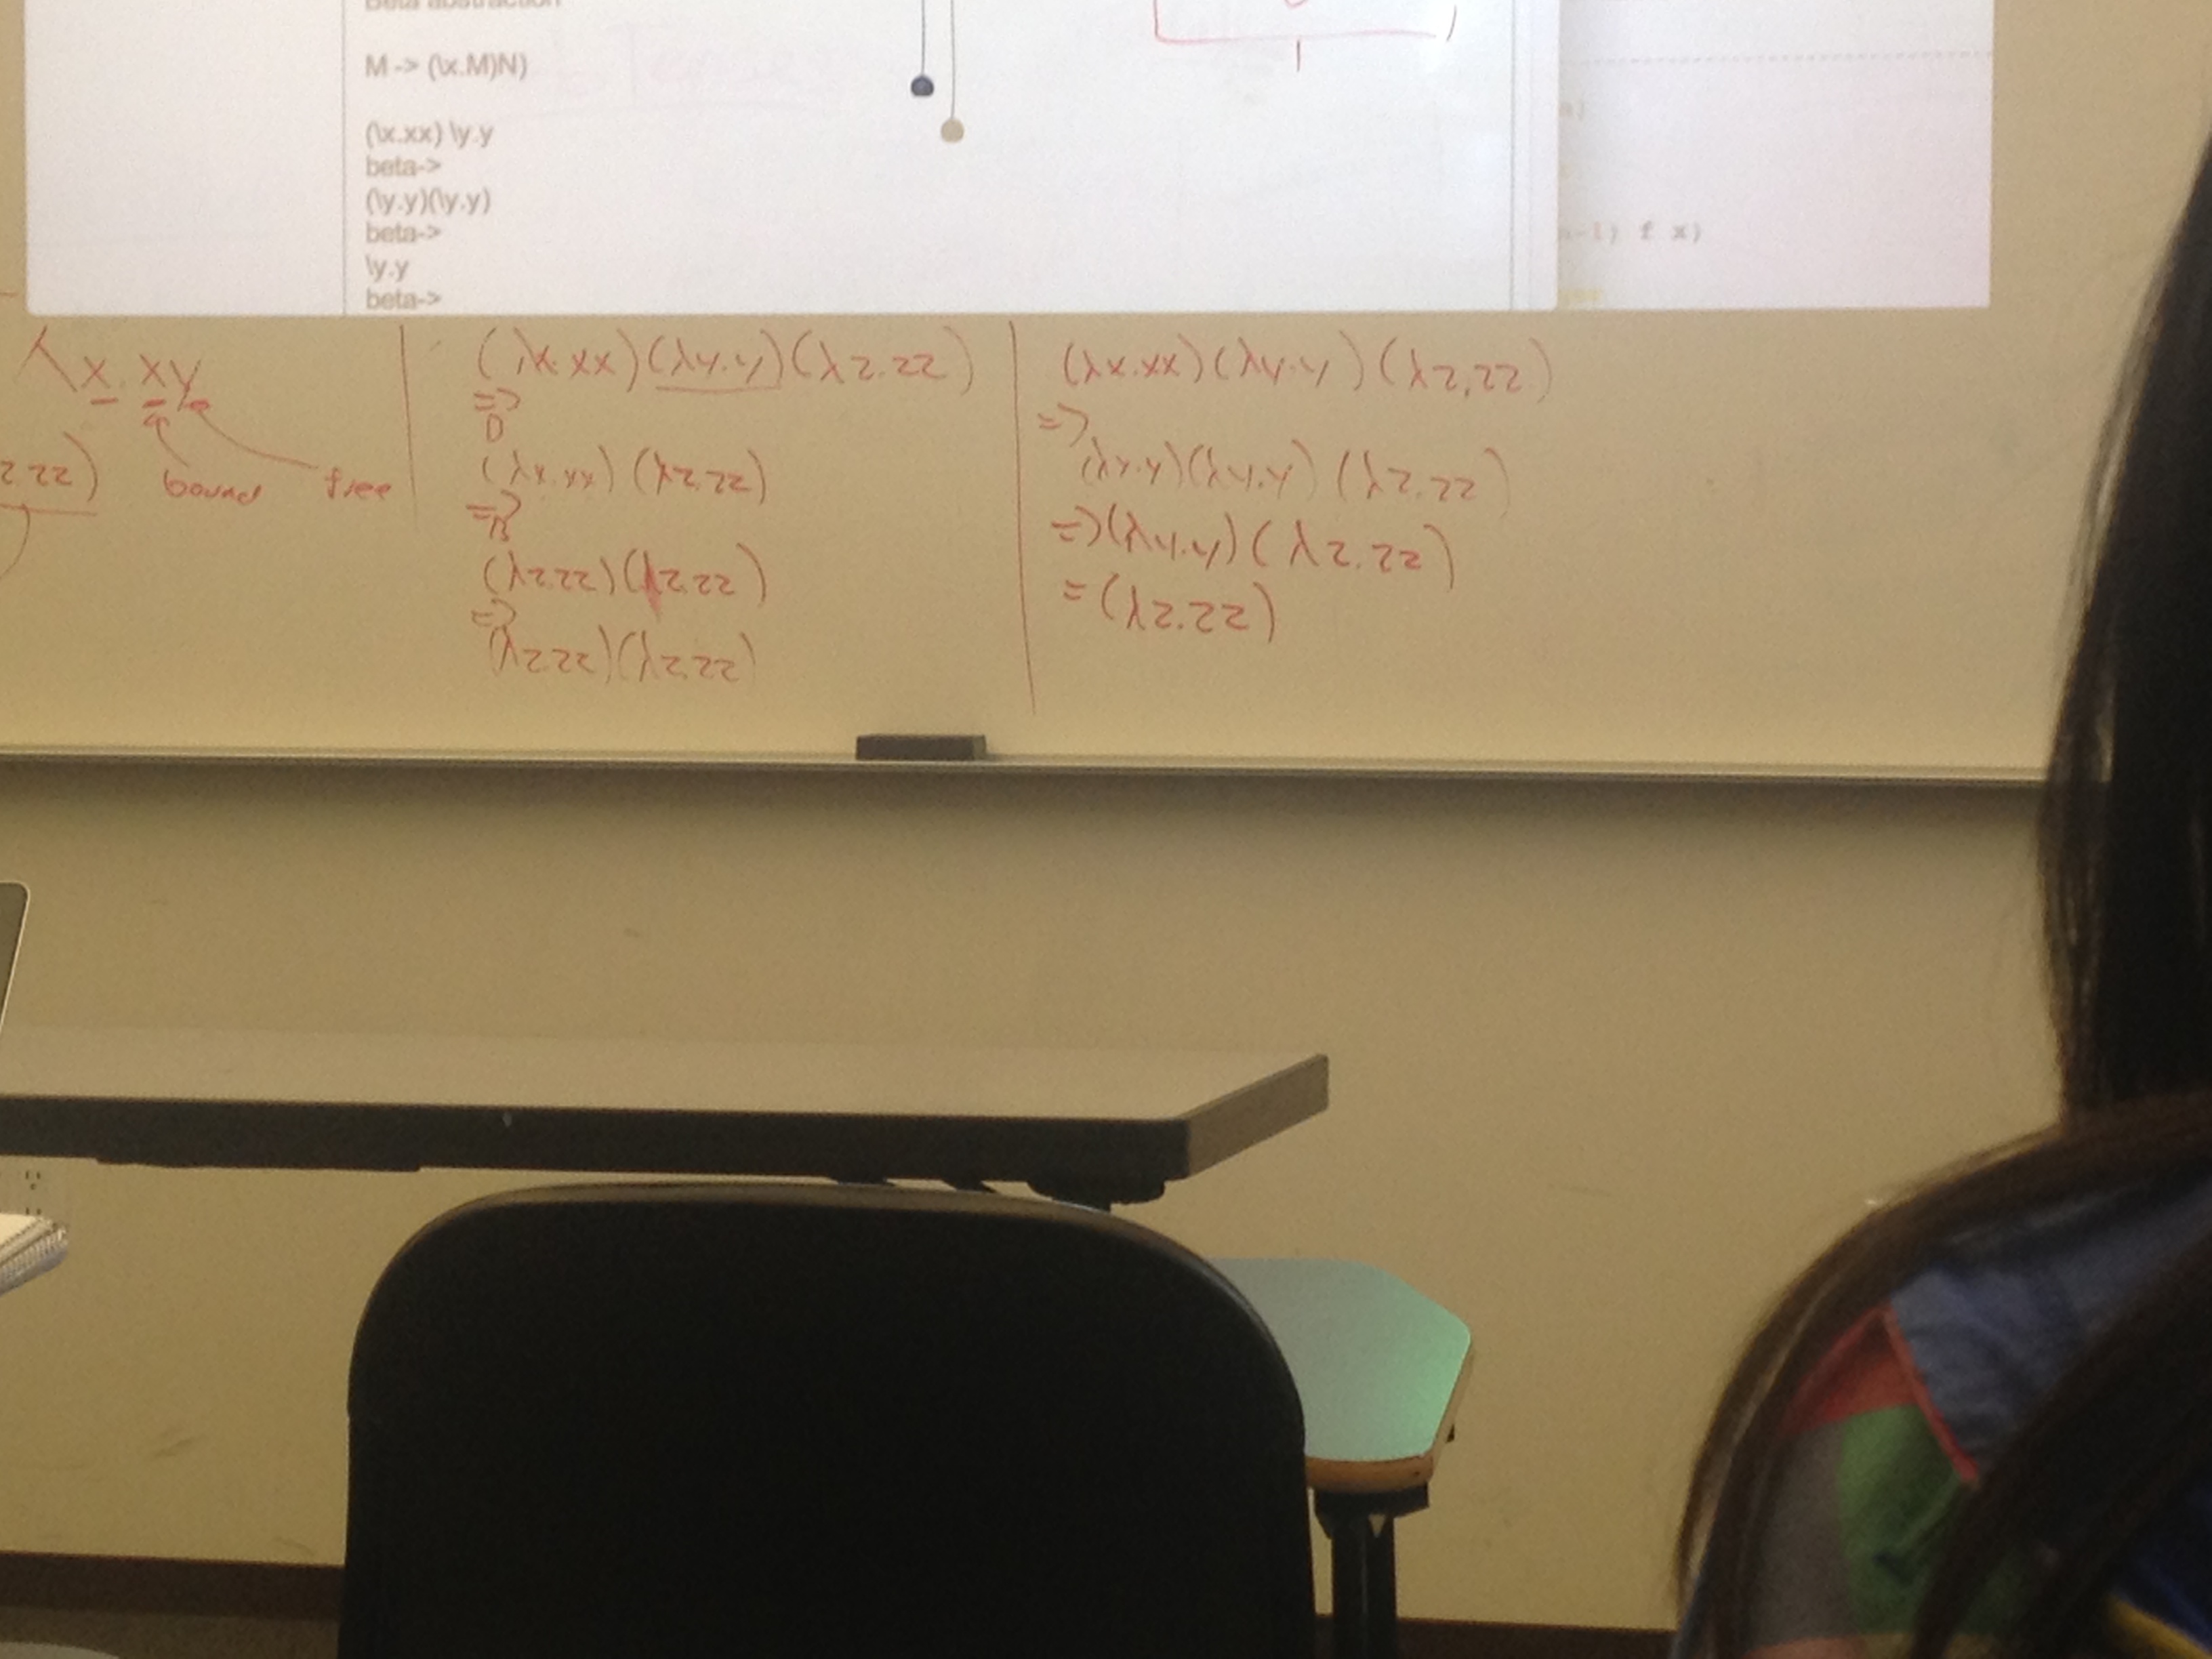 Beta abstraction
M -> (\x.M)N)
(\x.xx) \y.y
beta->
(\y.y)(\y.y)
beta->
\y.y
beta->
f x)
λx.xy
bound free
z zz)
(λx.xx)(λy.y)(λz.zz)
=>
(λx.xx)(λz.zz)
=>
(λz.zz)(λz.zz)
=>
(λz.zz)(λz.zz)
(λx.xx)(λy.y)(λz,zz)
=>
(λy.y)(λy.y)(λz.zz)
=>(λy.y)(λz.zz)
=(λz.zz)